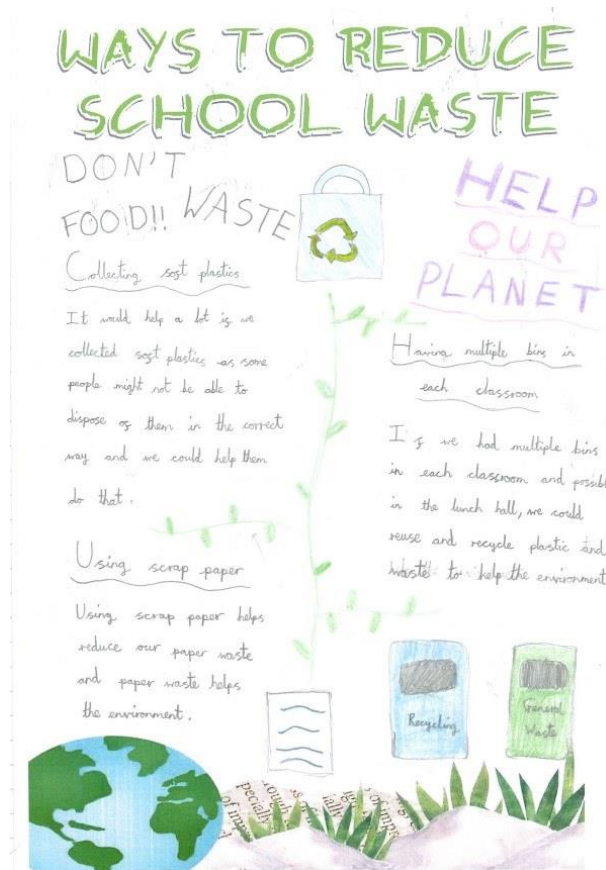 WAYS TO REDUCE
SCHOOL WASTE
DON'T
WASTE
FOOD!!
HELP
OUR
PLANET
Collecting soft plastics
It would help a lot if we
collected soft plastics as some
people might not be able to
dispose of them in the correct
way and we could help them
do that.
Using scrap paper
Using scrap paper helps
reduce our paper waste
and paper waste helps
the environment.
Having multiple bins in
each classroom
If we had multiple bins
in each classroom and possibl
in the lunch hall, we could
reuse and recycle plastic and
waste to help the environment
Recycling
General
Waste